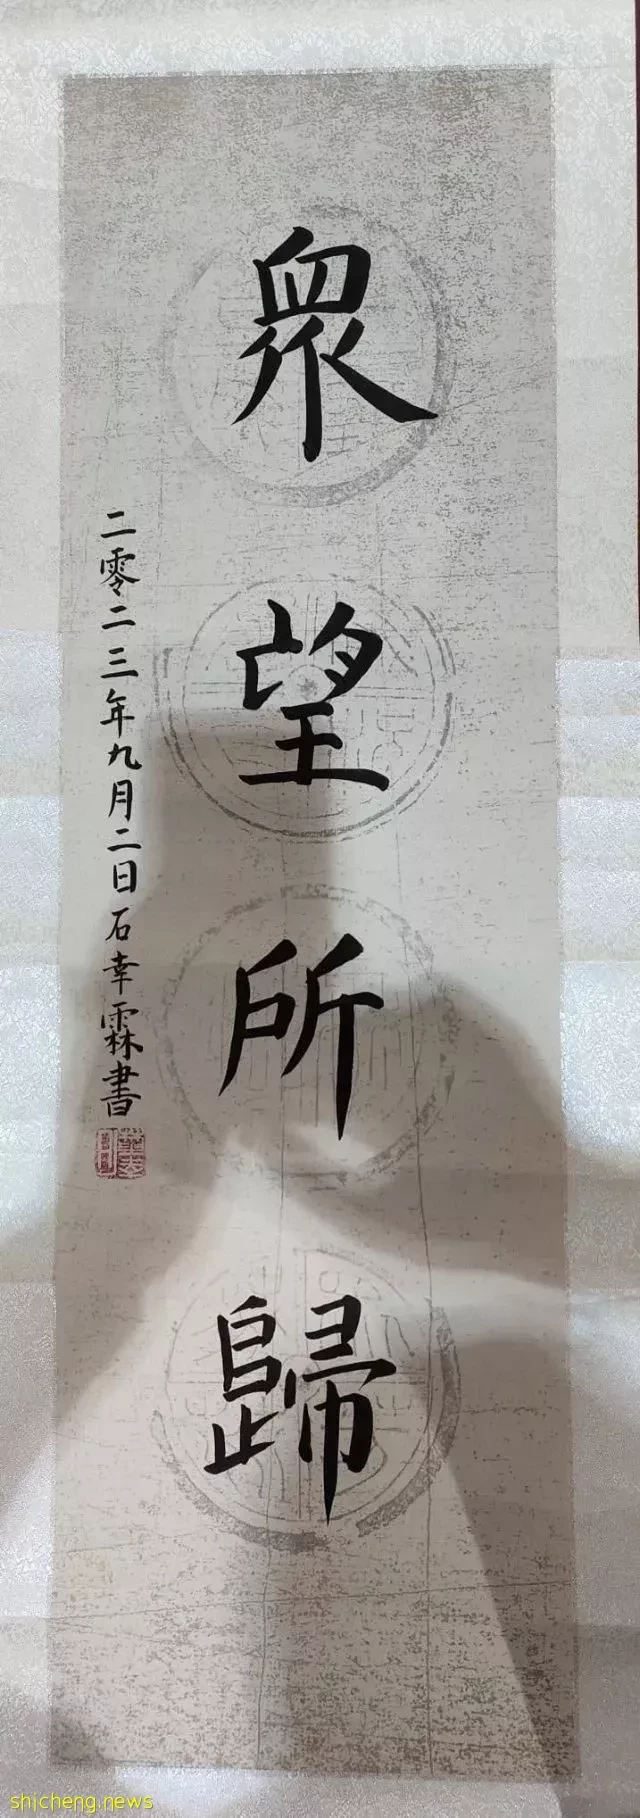 眾望所歸
二零二三年九月二日石幸霖書
shicheng.news